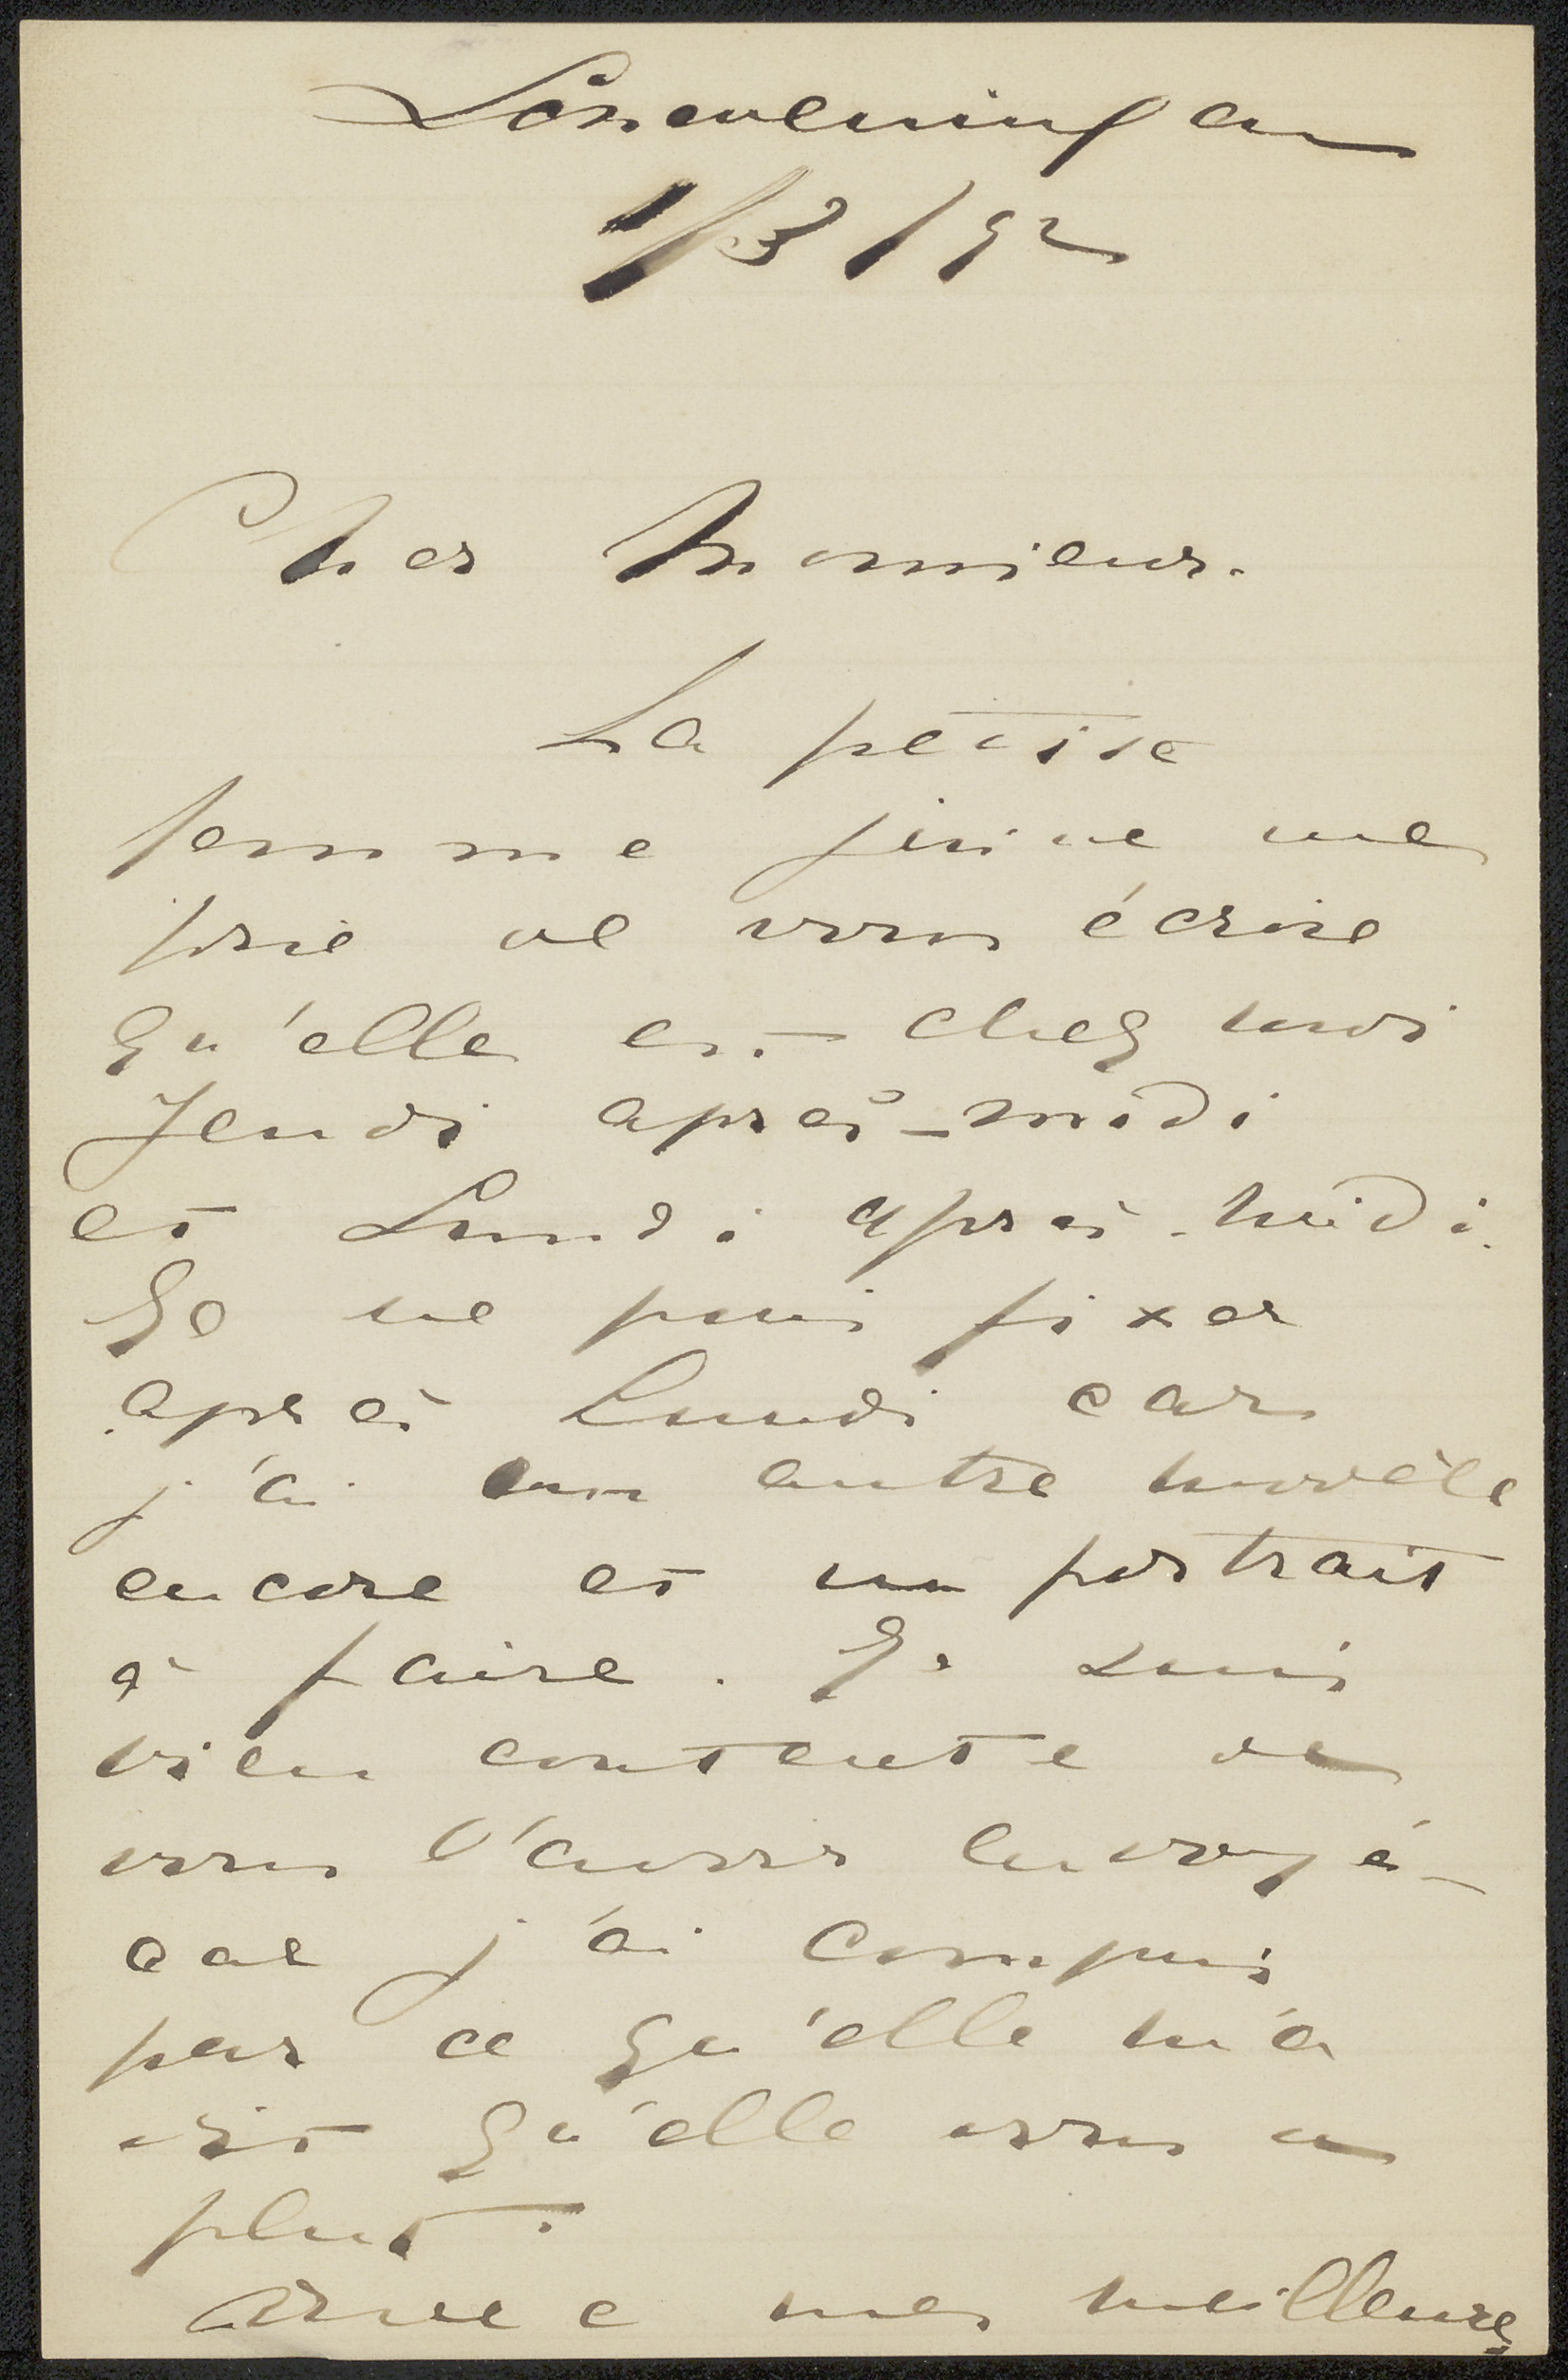 Scheveningen
1/3/92
Cher Monsieur.
La petite
femme juive me
prie de vous écrire
qu'elle est chez moi
Jeudi après-midi
et Lundi après-midi.
Je ne puis fixer
après Lundi car
j'ai un autre modèle
encore et un portrait
à faire. Je suis
bien contente de
vous l'avoir envoyé-
car j'ai compris
par ce qu'elle m'a
dit qu'elle vous a
plut.
Avec mes meilleures